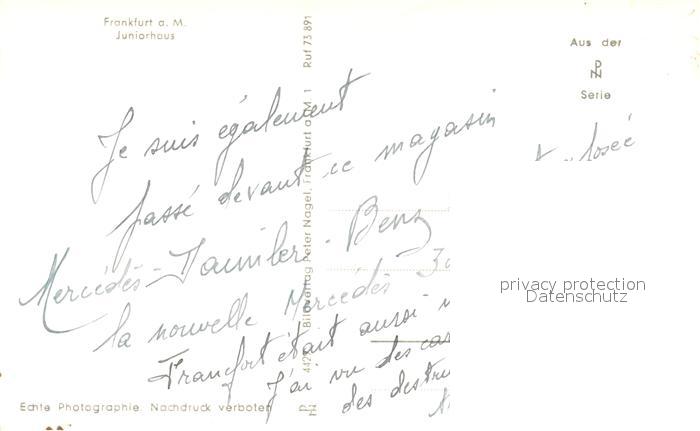 Frankfurt a. M.
Juniorhaus
Aus der
PN
Serie
Je suis également
passé devant ce magasin
Mercédès-Daimler-Benz
la nouvelle Mercédès
Francfort était aussi
J'ai vu des
des
4429 Bildverlag Peter Nagel, Frankfurt a. M. 1 Ruf 73 891
privacy protection
Datenschutz
Echte Photographie. Nachdruck verboten
PN